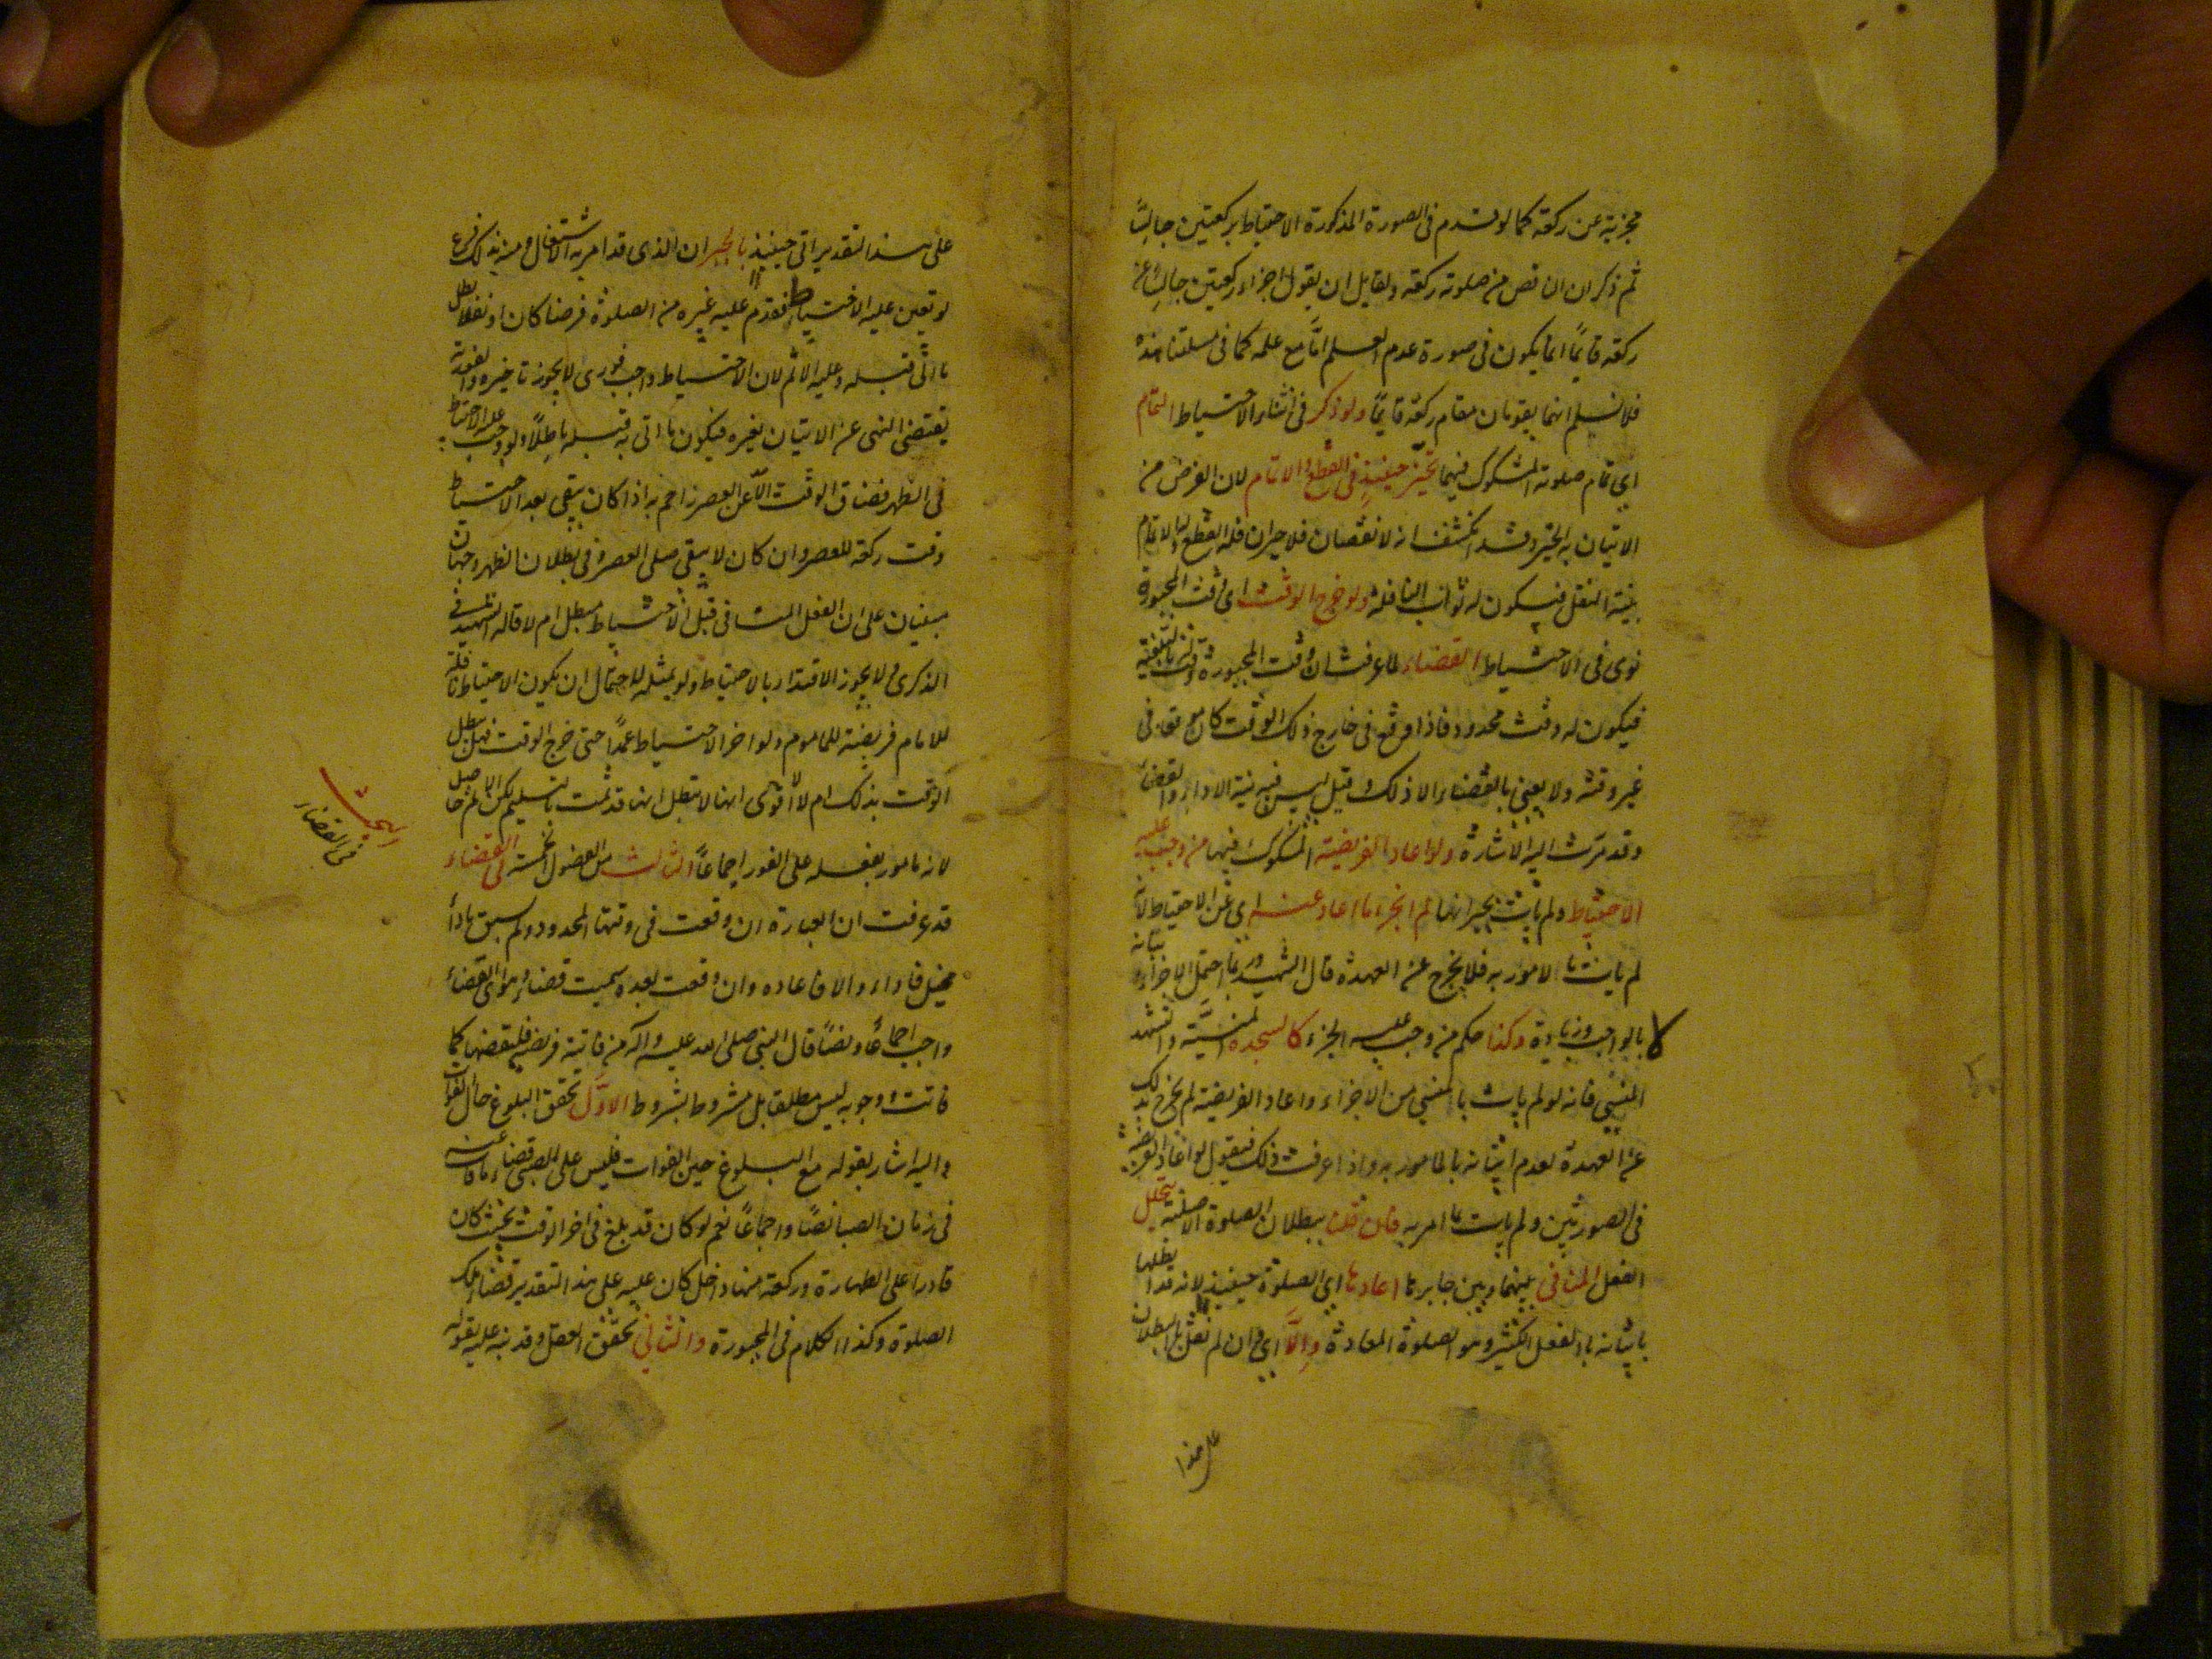 مجزية عن ركعة كما لو قدم فى الصورة المذكورة الاحتياط بركعتين جالسًا
ثم ذكر ان نقص من صلوته ركعة ولقايل ان يقول اجزاء ركعتين جالسا عن
ركعة قايمًا انما يكون فى صورة عدم العلم امّا مع علمه كما فى مسئلتنا هذه
فلا نسلم انهما يقومان مقام ركعة قايمًا ولو ذكر فى اثناء الاحتياط التمام
اى تمام صلوته المشكوك فيها تخيّر حينئذٍ فى القطع والاتمام لان الغرض من
الاتيان به الجبر وقد انكشف انه لا نقصان فلا جبران فله القطع وله الاتمام
بنية النفل فيكون له ثواب النافلة ولو خرج الوقت اى وقت المجبورة
نوى فى الاحتياط القضاء لما عرفت ان وقت المجبورة وقت
فيكون له وقت محدود فاذا وقع فى خارج ذلك الوقت كان موقعا فى
غير وقته ولا يعنى بالقضاء الا ذلك وقيل ليس فيه نية الاداء والقضاء
وقد مرّت اليه الاشارة ولو اعاد الفريضة المشكوك فيها من وجب عليه
الاحتياط ولم يات بجبرانها لم يجزء ما اعاد عنه اى عن الاحتياط لانه
لم يات بالمامور به فلا يخرج عن العهدة قال الشهيد وربما احتمل الاجزاء
لاتيانه بالواجب وزيادة وكذا حكم من وجب عليه الجزء كالسجدة المنسيّة والتشهد
المنسى فانه لو لم يات بالمنسى من الاجزاء واعاد الفريضة لم يخرج بذلك
عن العهدة لعدم اتيانه بالمامور به واذا عرفت ذلك فنقول لو اعاد الفريضة
فى الصورتين ولم يات بما امر به فان قلنا ببطلان الصلوة الاصلية بتخلل
الفعل المنافى بينها وبين جابرها اعادها اى الصلوة حينئذ لانه قد ابطلها
باتيانه بالفعل الكثير وهو الصلوة المعادة والّا اى وان لم نقل بالبطلان
على هذا
على هذا التقدير اتى حينئذٍ بالجبران الذى قد امر به
لو تعين عليه الاحتياط فقدم عليه غيره من الصلوة فرضا كان او نفلا بطل
ما اتى قبله وعليه الاثم لان الاحتياط واجب فورى لا يجوز تاخيره والفورية
تقتضى النهى عن الاتيان بغيره فيكون ما اتى به قبله باطلًا ولو وجب عليه الاحتياط
فى الظهر فضاق الوقت الّا عن العصر زاحم به اذا كان يبقى بعد الاحتياط
وقت ركعة للعصر وان كان لا يبقى صلى العصر وفى بطلان الظهر وجهان
مبنيان على ان الفعل المنافى قبل الاحتياط مبطل ام لا قاله الشهيد فى
الذكرى ولا يجوز الاقتداء بالاحتياط ولو بمثله لاحتمال ان يكون الاحتياط نافلة
للامام فريضة للماموم ولو اخر الاحتياط عمدًا حتى خرج الوقت فهل يبطل
الوقت بذلك ام لا اقوى انها لا تبطل لانها قد تمت بالتسليم
لانه مامور بفعله على الفور اجماعًا الثالث من الفصول الخمسة فى القضاء
قد عرفت ان العبارة ان وقعت فى وقتها المحدود ولم يسبق باداء
مختل فاداء والا فاعاده وان وقعت بعده سميت قضاء وهو اى القضاء
واجب اجماعًا ونصًا قال النبى صلى الله عليه واله من فاتته فريضة فليقضها كما
فاتت ووجوبه ليس مطلقا بل مشروط بشروط الاوّل تحقق البلوغ حال الفوات
واليه اشار بقوله مع البلوغ حين الفوات فليس على الصبى قضاء ما فاته
فى زمان الصبا نصًا واجماعًا نعم لو كان قد بلغ فى اخر الوقت بحيث كان
قادرا على الطهارة وركعة منها دخل كان عليه على هذا التقدير قضاء تلك
الصلوة وكذا الكلام فى المجبورة والثانى تحقق العقل وقد نبه عليه بقوله
البحث
فى القضاء